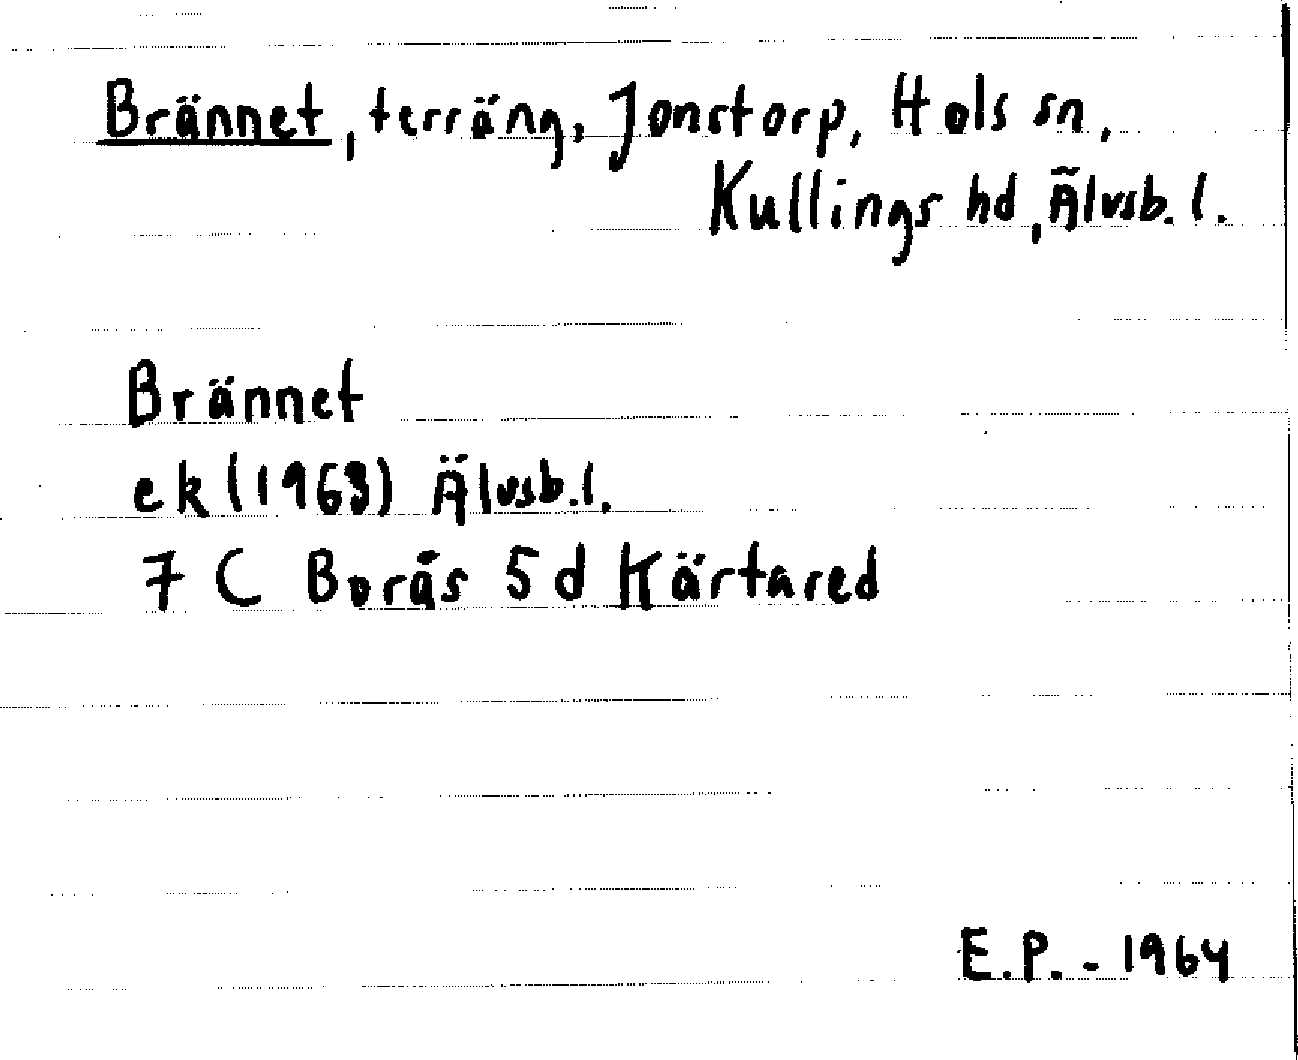 Brännet, terräng, Jonstorp, Hols sn,
Kullings hd, Älvsb. l.
Brännet
ek (1963) Älvsb. l.
7 C Borås 5 d Kärtared
E.P. - 1964